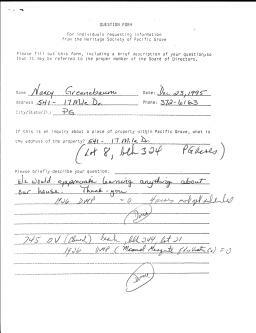 QUESTION FORM
For individuals requesting information
from the Heritage Society of Pacific Grove
Please fill out this form, including a brief description of your question so
that it may be referred to the proper member of the Board of Directors.
Name Nancy Greenebaum Date: Dec 23, 1995
Address 541- 17 Mile Dr. Phone: 372-6163
City/State/Z: PG
If this is an inquiry about a piece of property within Pacific Grove, what is
the address of the property? 541- 17 Mile Dr.
(Lot 8, blk 324 PG Acres)
Please briefly describe your question:
We would appreciate learning anything about
our house. Thank-you
1926 DMP = 0
Done
745 OV blk 244 lot 21
1926 DMP = 0
Done